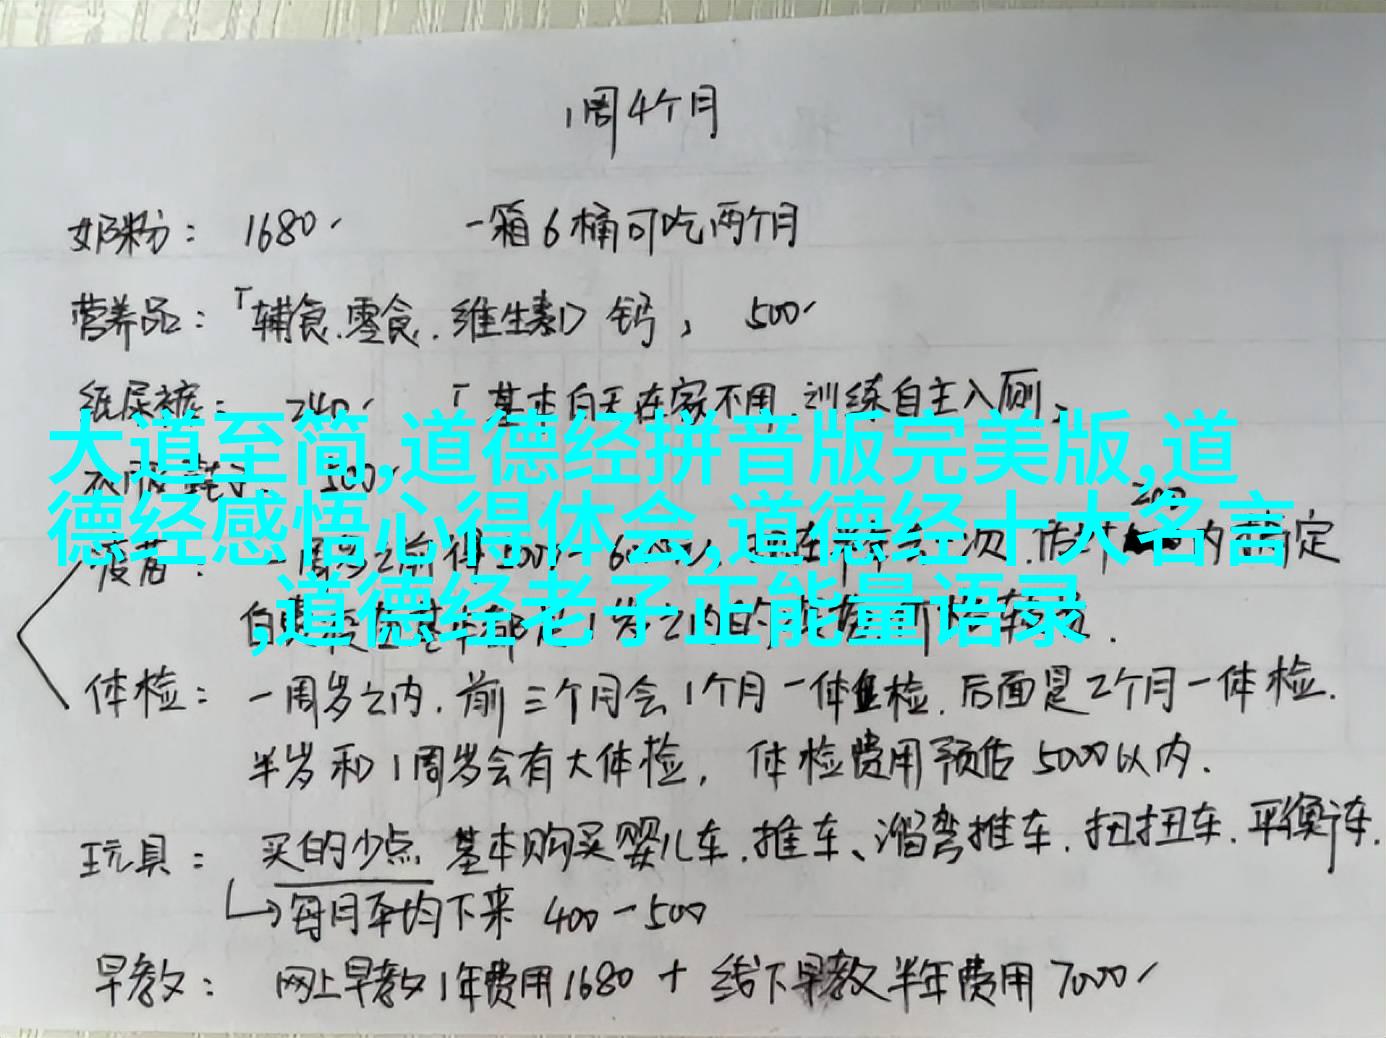 1周4个月
奶粉： 1680 一箱6桶可吃两个月
营养品：「辅食.零食.维生素D 钙， 500
纸尿裤： 240 「基本白天在家不用.训练自主入厕、
大道至简,道德经拼音版完美版,道
德经感悟心得体会,道德经十大名言
,道德经老子正能量语录
体检： 一周岁之内.前三个月会1个月一体检.后面是2个月一体检.
半岁和1周岁会有大体检， 体检费用预估5000以内.
玩具： 买的少点 基本购买婴儿车.推车、溜弯推车.扭扭车.平衡车.
每月平均下来 400-500
早教： 网上早教1年费用1680 + 线下早教半年费用7000